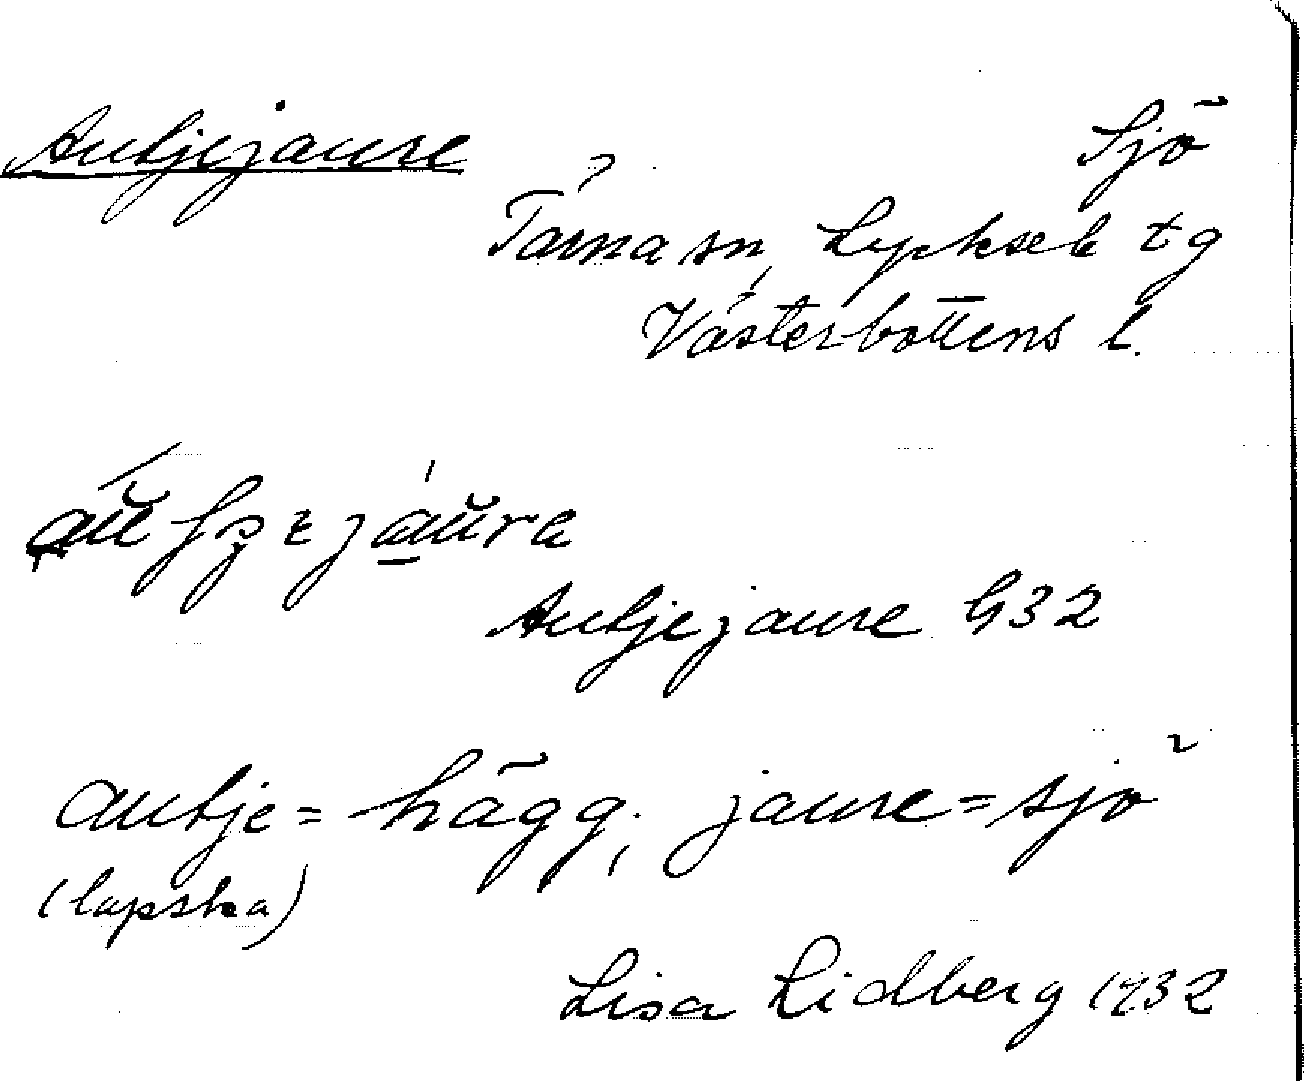 Autjejaure
Sjö
Tärna sn, Lycksele tg
Västerbottens l.
Autjejaure G32
autje = hägg, jaure = sjö
(lapska)
Lisa Lidberg 1932